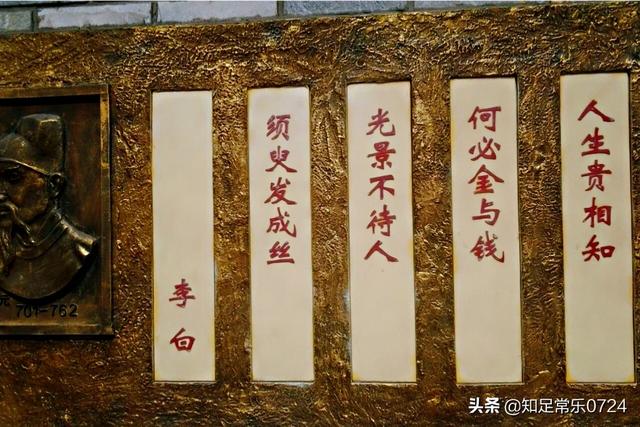 人生贵相知
何必金与钱
光景不待人
须臾发成丝
李白
701-762
头条 @知足常乐0724